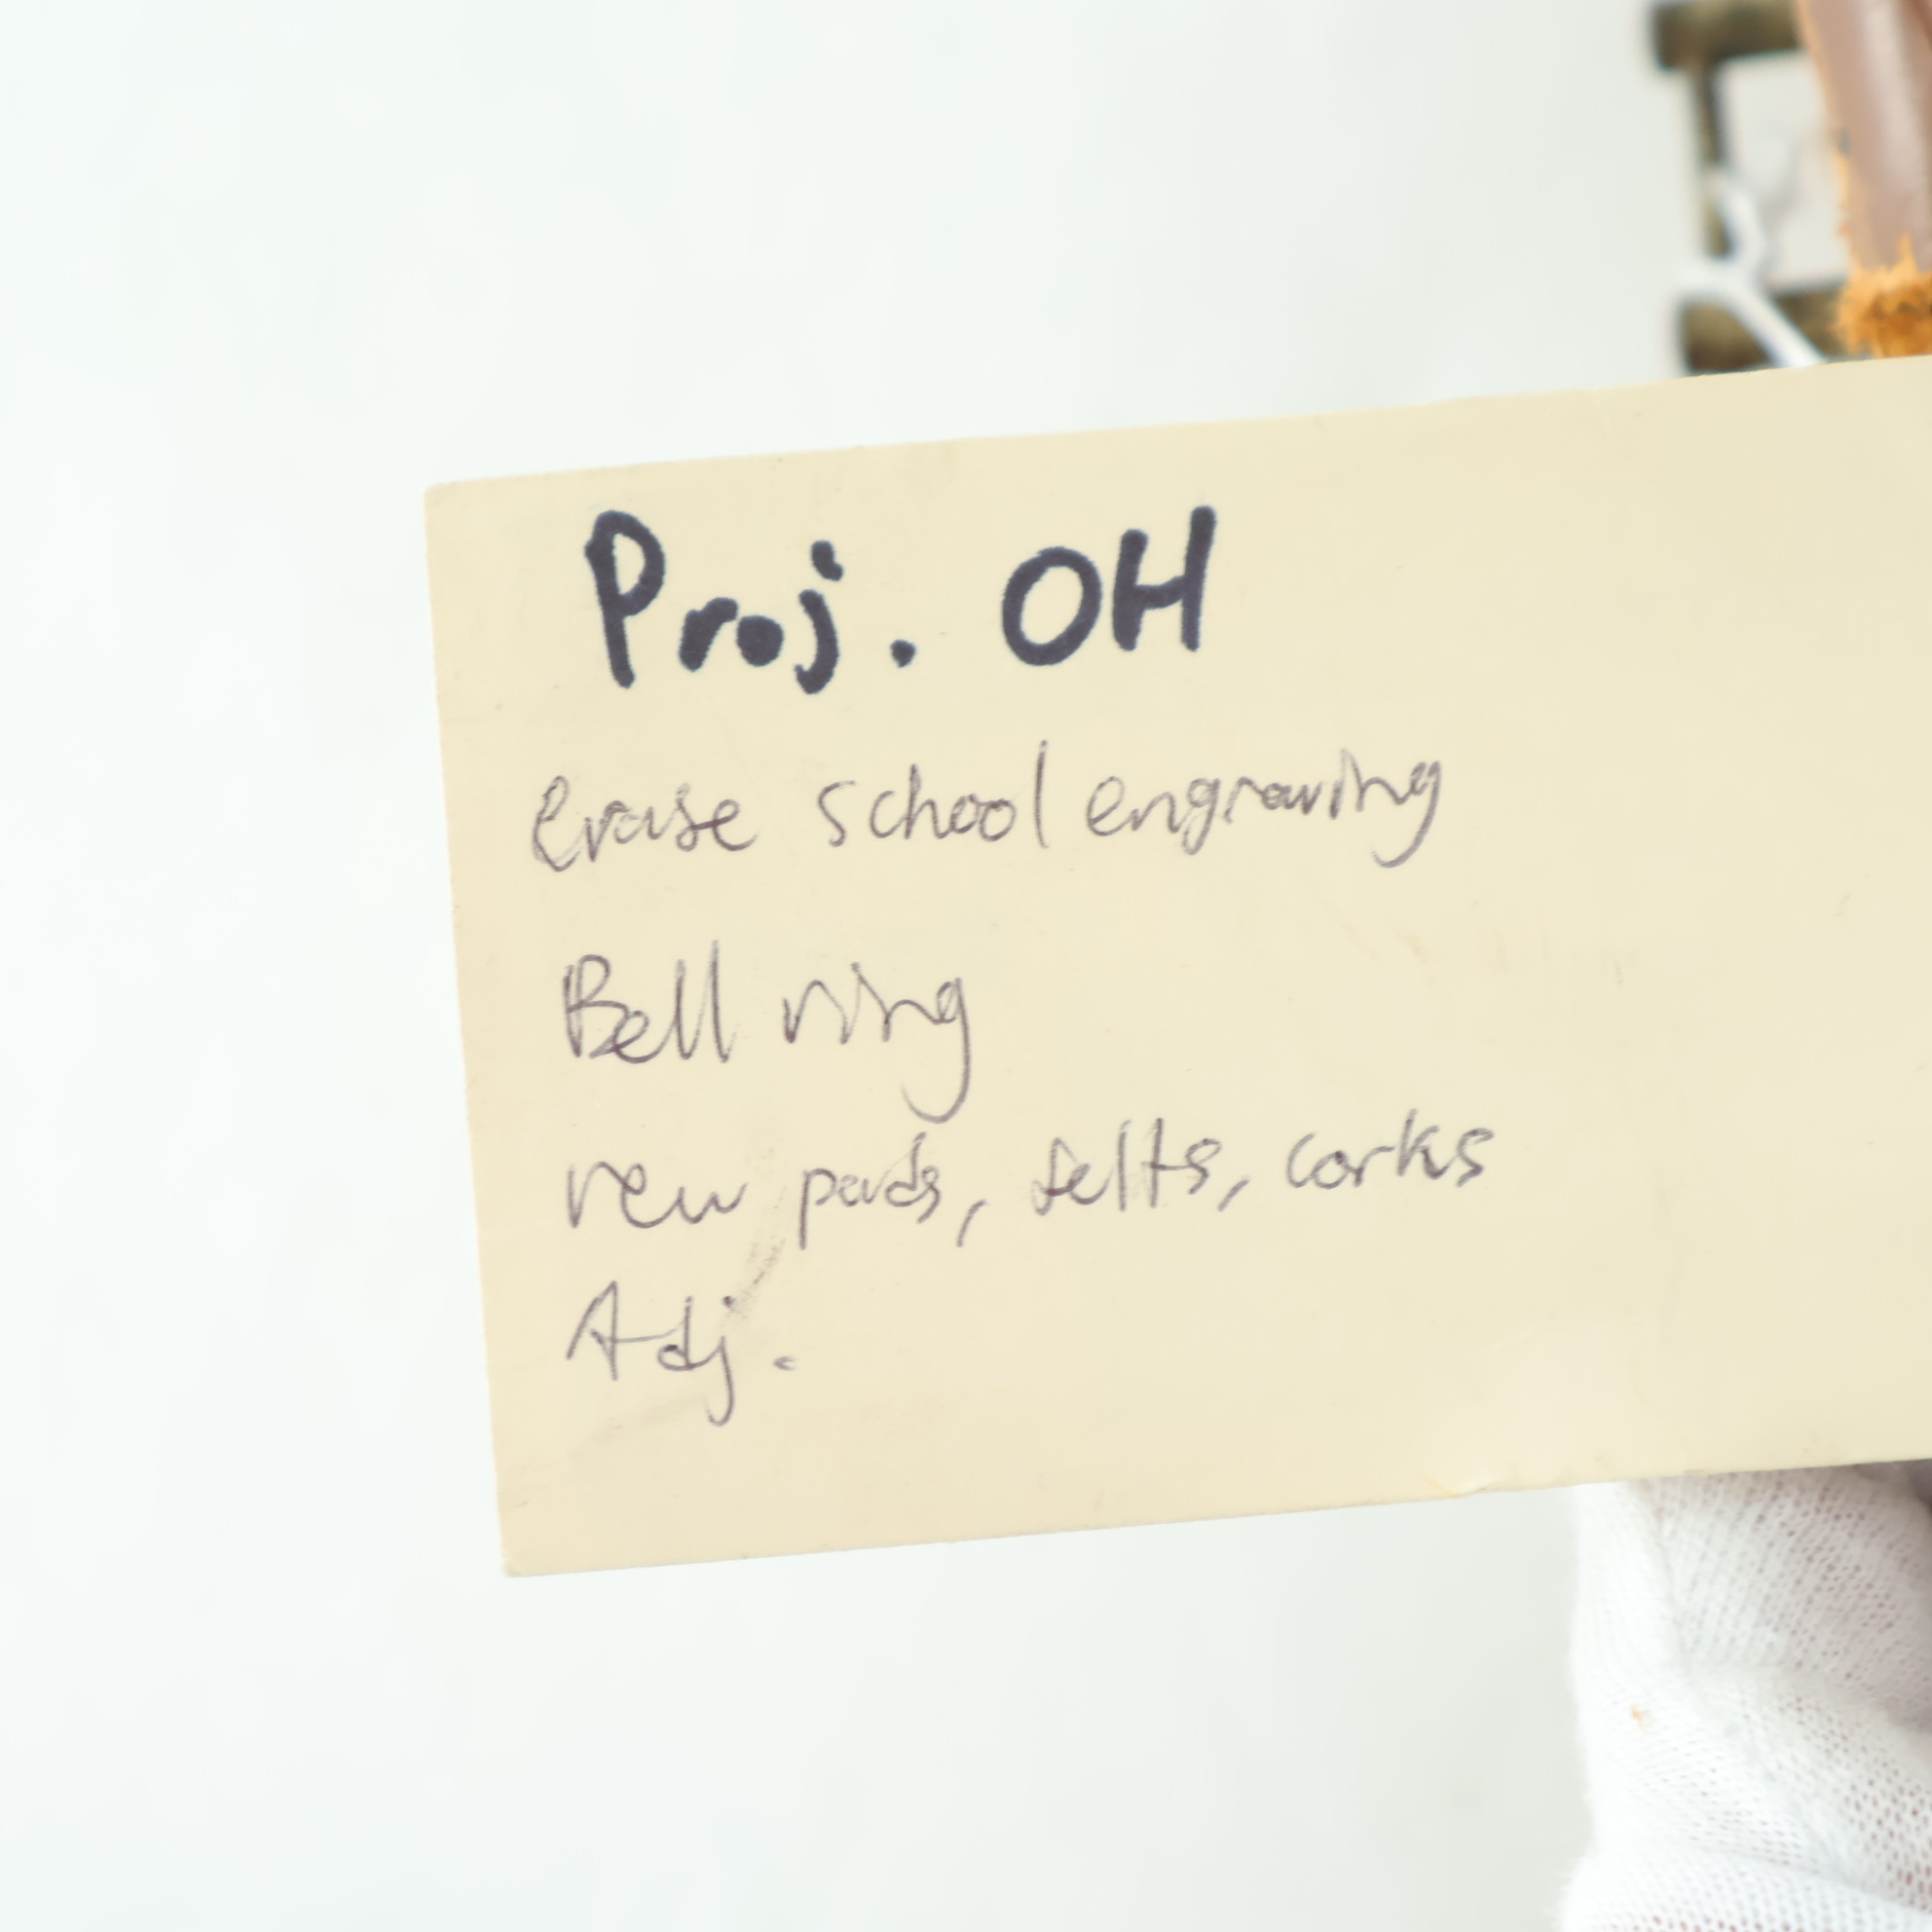 Proj. OH
erase school engraving
Bell ring
new pads, felts, corks
Adj.